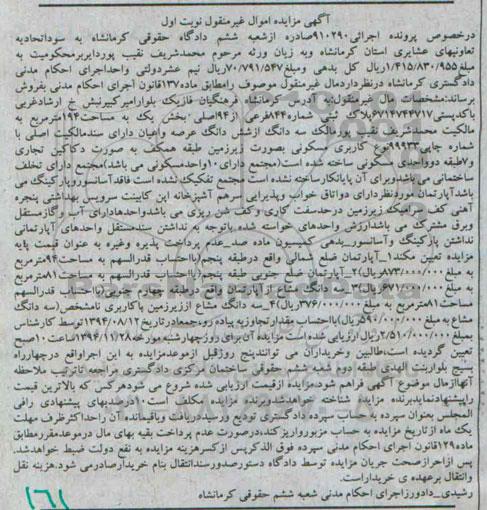 آگهی مزایده اموال غیرمنقول نوبت اول
درخصوص پرونده اجرائی۹۱۰۲۹۰صادره ازشعبه ششم دادگاه حقوقی کرمانشاه به سوداتحادیه
تعاونیهای عشایری استان کرمانشاه وبه زیان ورثه مرحوم محمدشریف نقیب پوردایربرمحکومیت به
مبلغ۱/۴۱۵/۸۳۰/۹۵۵ریال کل بدهی ومبلغ۷۰/۷۹۱/۵۴۷ریال نیم عشردولتی واحداجرای احکام مدنی
دادگستری کرمانشاه درنظرداردمال غیرمنقول موصوف رامطابق ماده۱۳۷قانون اجرای احکام مدنی بفروش
برساند:مشخصات مال غیرمنقول:به آدرس کرمانشاه فرهنگیان فازیک بلوارامیرکبیرنبش خ ارشادغربی
باکدپستی۶۷۱۴۷۴۴۷۱۷پلاک ثبتی شماره۱۴۴فرعی از۹۴اصلی بخش یک به مساحت۱۹۴مترمربع به
مالکیت محمدشریف نقیب پورمالک سه دانگ ازشش دانگ عرصه واعیان دارای سندمالکیت اصلی با
شماره چاپی۹۹۹۳۳نوع کاربری مسکونی بصورت زیرزمین طبقه همکف به صورت دکاکین تجاری
و۷طبقه دوواحدی مسکونی ساخته شده است(مجتمع دارای۱۰واحدمسکونی می باشد)مجتمع دارای تخلف
ساختمانی می باشدوبرای آن پایانکارساخته نشده است مجتمع تفکیک نشده است فاقدآسانسوروپارکینگ می
باشدآپارتمان موردنظردارای دواتاق خواب وپذیرایی سرهم آشپزخانه اپن کابینت سرویس بهداشتی پنجره
آهنی کف سرامیک زیرزمین درحدسفت کاری وکف شن ریزی می باشدواحدهادارای آب وگازمستقل
وبرق مشترک می باشدارزش واحدهای خواسته شده باتوجه به نداشتن سندمستقل واحدهای آپارتمانی
نداشتن پارکینگ وآسانسور_بدهی کمیسیون ماده صد_عدم پرداخت پذیره وغیره به عنوان قیمت پایه
مزایده تعیین مکند۱_آپارتمان ضلع شمالی واقع درطبقه پنجم(بااحتساب قدرالسهم به مساحت۹۴مترمربع
به مبلغ۸۷۳/۰۰۰/۰۰۰ریال)۲_آپارتمان ضلع جنوبی طبقه پنجم(بااحتساب قدرالسهم به مساحت۸۱مترمربع
به مبلغ۶۷۱/۰۰۰/۰۰۰ریال)۳_دانگ مشاع ازآپارتمان واقع درطبقه چهارم جنوبی(بااحتساب قدرالسهم
مساحت۸۱مترمربع به مبلغ۳۷۶/۰۰۰/۰۰۰ریال)۴_سه دانگ مشاع اززیرزمین باکاربری نامشخص(سه دانگ
مشاع به مبلغ۵۹۰/۰۰۰/۰۰۰ریال)بااحتساب مقدارتجاوزبه پیاده رو،جمعادرتاریخ۱۳۹۴/۰۸/۱۲توسط کارشناس
بمبلغ۲/۵۱۰/۰۰۰/۰۰۰ریال ارزیابی شده است مزایده آن برای روزچهارشنبه مورخه۱۳۹۴/۱۱/۲۸ساعت۱۰صبح
تعیین گردیده است،طالبین وخریداران می توانندپنج روزقبل ازموعدمزایده به این اجراواقع درچهارراه
بسیج بلواربنت الهدی طبقه دوم شعبه ششم حقوقی ساختمان مرکزی دادگستری مراجعه تاترتیب ملاحظه
آنهاازمال موضوع آگهی فراهم شود.مزایده ازقیمت ارزیابی شده شروع می شودهرکس که بالاترین قیمت
راپیشنهادنمایدبرنده مزایده شناخته خواهدشدوبرنده مزایده مکلف است۱۰درصدبهای پیشنهادی رافی
المجلس بعنوان سپرده به حساب سپرده دادگستری تودیع ورسیددریافت وباقیمانده آن راحداکثرظرف مهلت
یک ماه ازتاریخ مزایده به حساب مزبورواریزکند،درصورت عدم پرداخت بقیه بهای مال درموعدمقررمطابق
ماده۱۲۹قانون اجرای احکام مدنی سپرده فوق الذکرپس ازکسرهزینه مزایده به نفع دولت ضبط خواهدشد.
پس ازاحرازصحت جریان مزایده توسط دادگاه دستورصدورسندانتقال بنام خریدارصادرمی شود.هزینه نقل
وانتقال برعهده ی خریداراست.
رشیدی_دادورزاجرای احکام مدنی شعبه ششم حقوقی کرمانشاه
۱۶۱